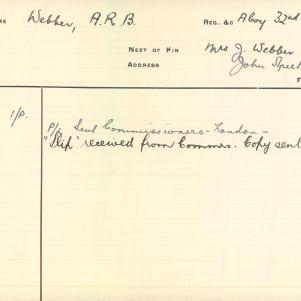 RE Webber, A.R.B. REG. &C A Coy 32nd
NEXT OF KIN Mrs J. Webber
ADDRESS John
F
1/P. P/c Sent Commissioners - London -
"Slip" received from Commrs. Copy sent